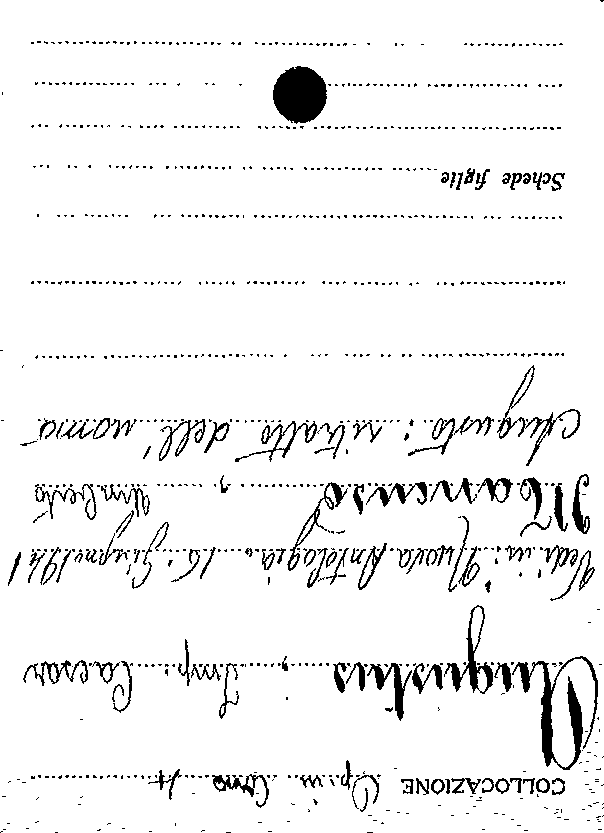 COLLOCAZIONE Op. in
Augustus, Imp. Caesar
Vedi in: Nuova Antologia. 16. Giugno 1941
Mancuso, Umberto
Augusto: ritratto dell'uomo
Schede figlie